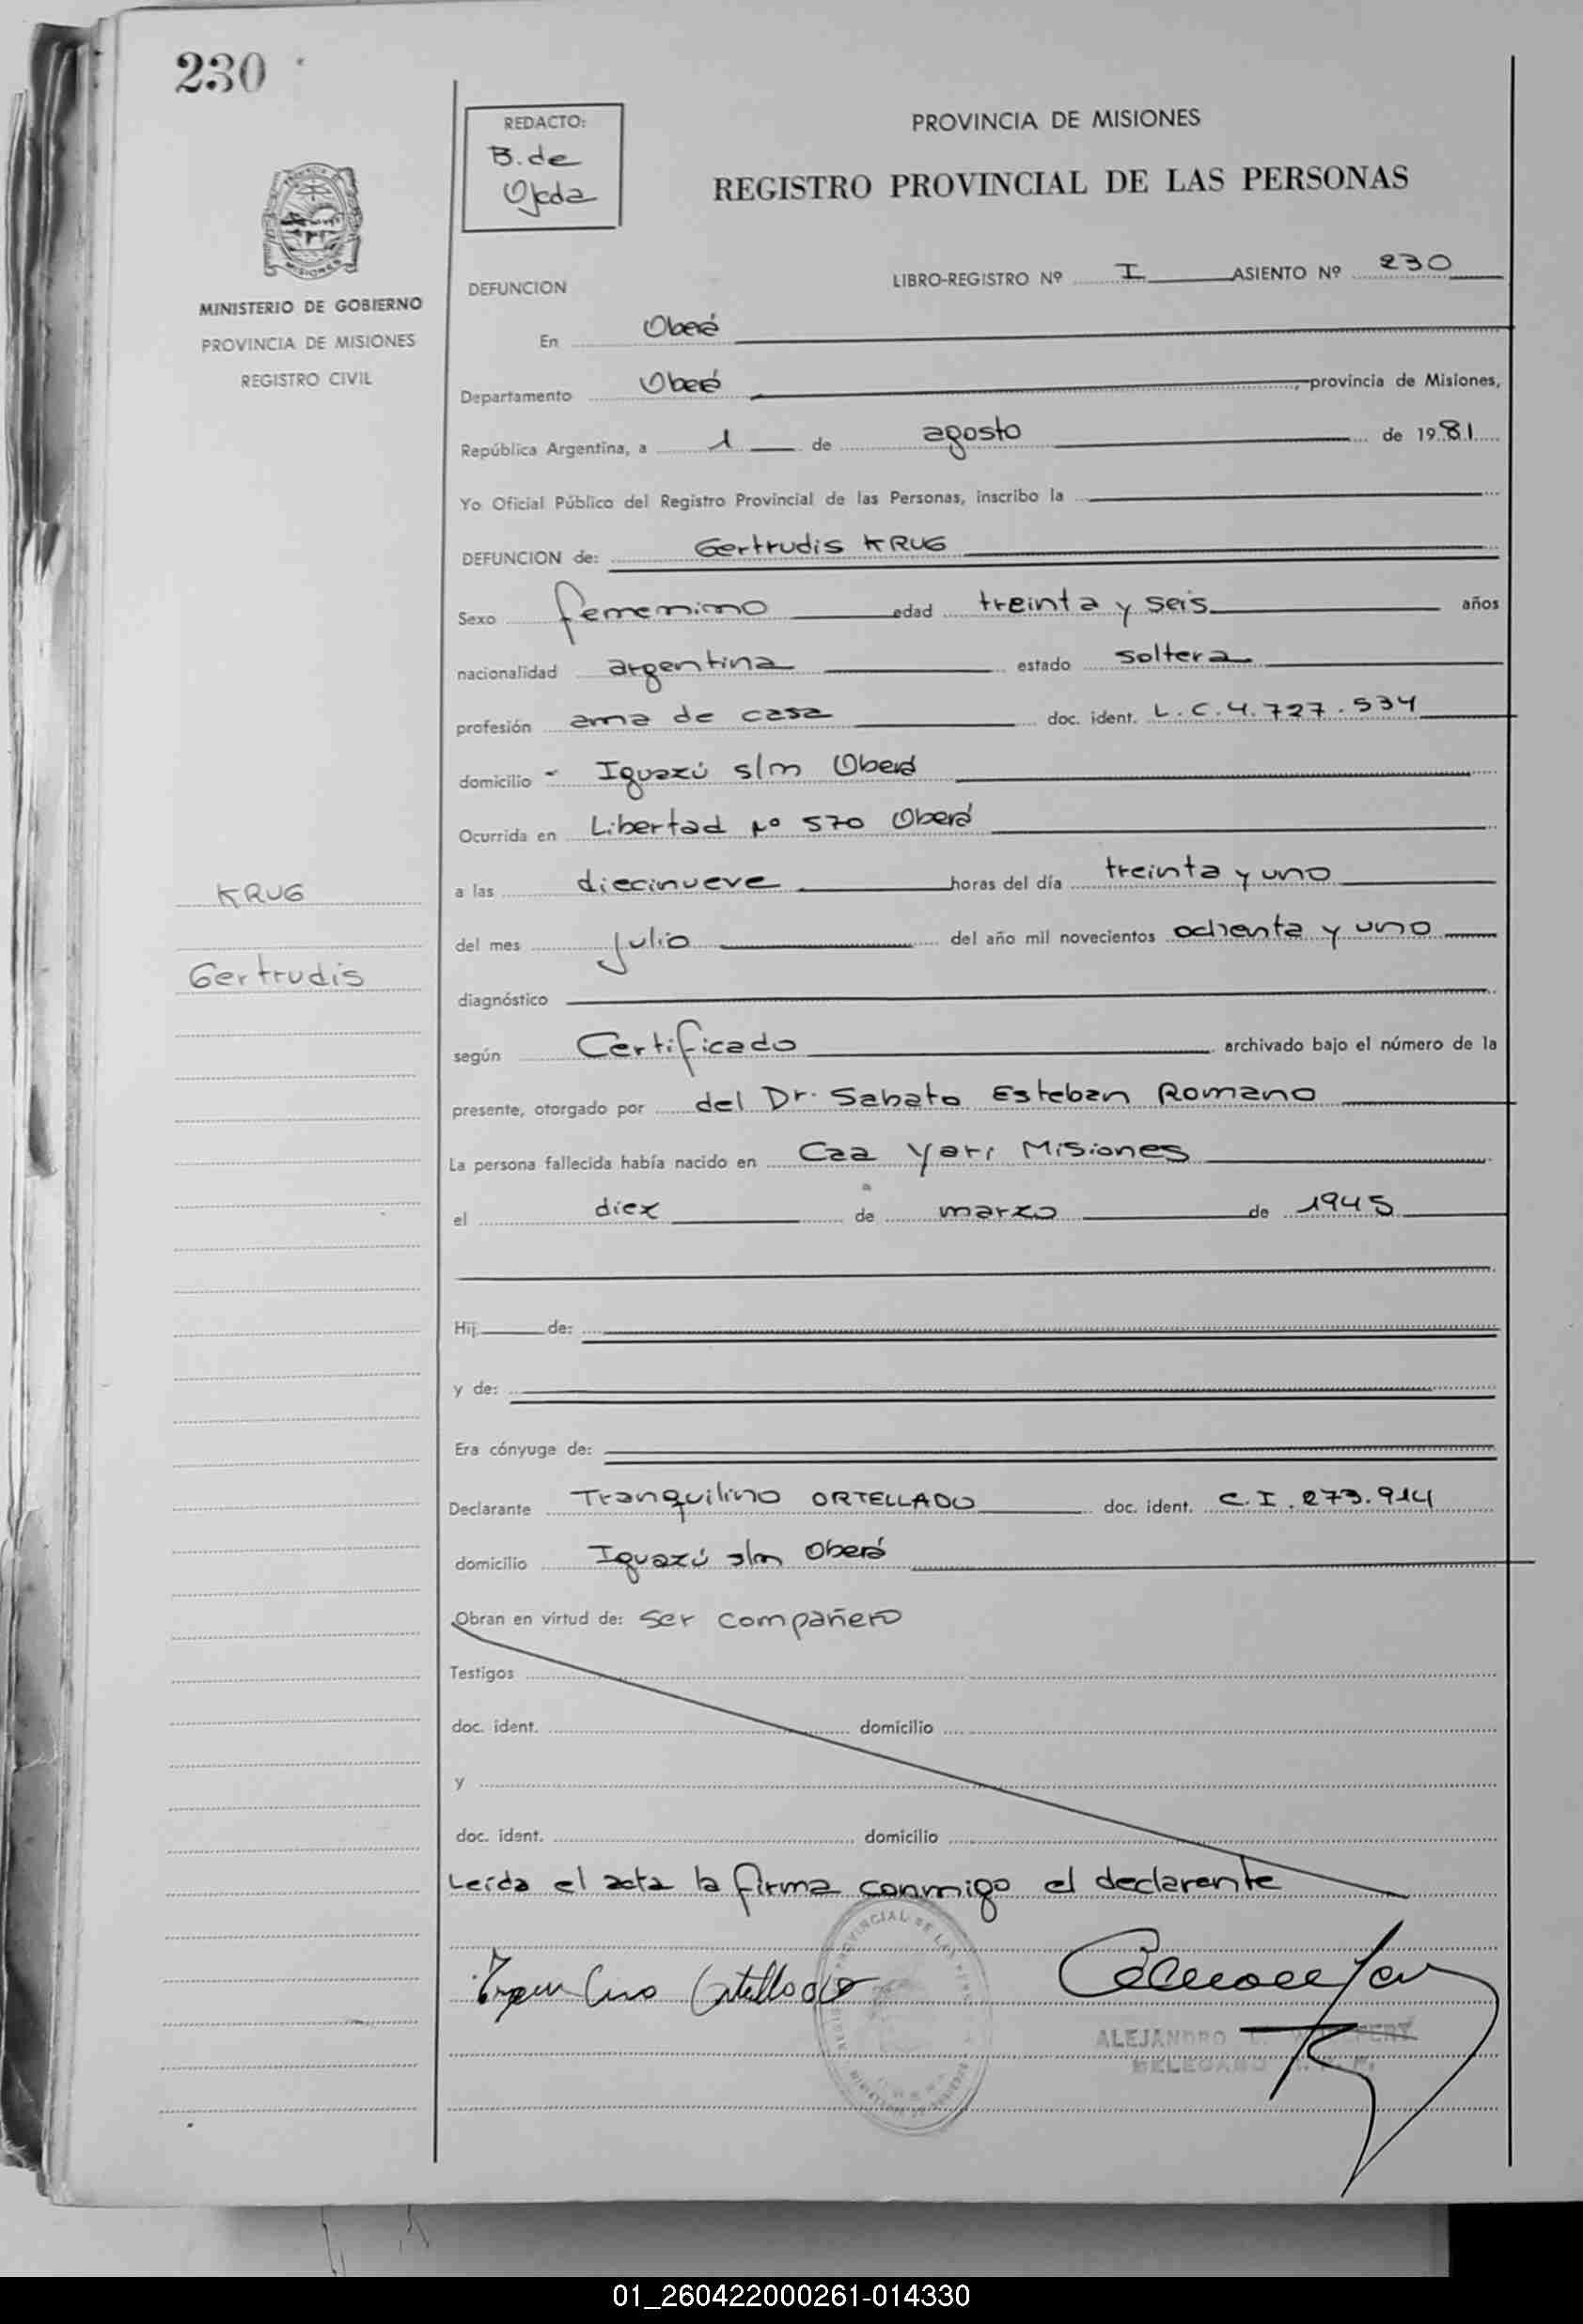 230
REDACTO:
B. de
Ojeda
PROVINCIA DE MISIONES
REGISTRO PROVINCIAL DE LAS PERSONAS
MISIONES
MINISTERIO DE GOBIERNO
PROVINCIA DE MISIONES
REGISTRO CIVIL
DEFUNCION
LIBRO-REGISTRO Nº I ASIENTO Nº 230
En Oberá
Departamento Oberá, provincia de Misiones,
República Argentina, a 1 de agosto de 1981
Yo Oficial Público del Registro Provincial de las Personas, inscribo la
DEFUNCION de: Gertrudis KRUG
Sexo femenino edad treinta y seis años
nacionalidad argentina estado soltera
profesión ama de casa doc. ident. L.C.4.727.534
domicilio - Iguazú s/m Oberá
Ocurrida en Libertad Nº 570 Oberá
a las diecinueve horas del día treinta y uno
KRUG
del mes julio del año mil novecientos ochenta y uno
Gertrudis
diagnóstico
según Certificado archivado bajo el número de la
presente, otorgado por del Dr. Sabato Esteban Romano
La persona fallecida había nacido en Caa Yari Misiones
el diez de marzo de 1945
Hij de:
y de:
Era cónyuge de:
Declarante Tranquilino ORTELLADO doc. ident. C.I.273.914
domicilio Iguazú s/m Oberá
Obran en virtud de: Ser compañero
Testigos
doc. ident. domicilio
y
doc. ident. domicilio
Leída el acta la firma conmigo el declarante
ALEJANDRO
DELEGADO
01_260422000261-014330